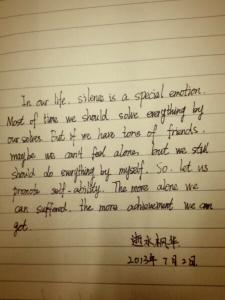 In our life, silence is a special emotion.
Most of time we should solve everything by
ourselves. But if we have tons of friends,
maybe we can't feel alone, but we still
should do everything by myself. So, let us
promote self-ability. The more alone we
can suffered, the more achievement we can
got.
永枫华
2013年7月2日